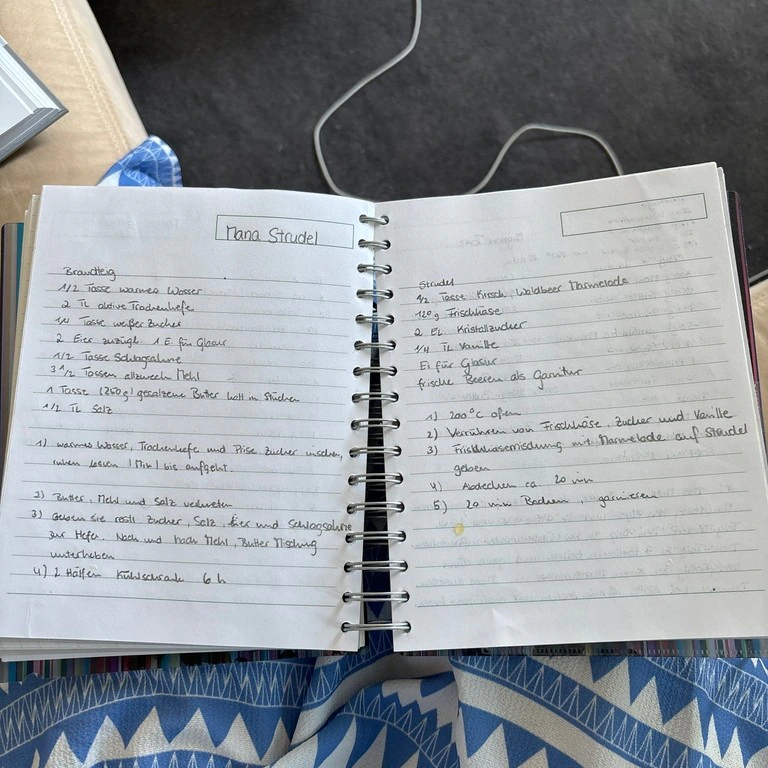 Mana Strudel
Brandteig
1/2 Tasse warmes Wasser
2 TL aktive Trockenhefe
1/4 Tasse weißer Zucker
2 Eier zuzügl. 1 E. für Glasur
1/2 Tasse Schlagsahne
3 1/2 Tassen allzweck Mehl
1 Tasse (250g) gesalzene Butter kalt in Stücken
1/2 TL Salz
1) warmes Wasser, Trockenhefe und Prise Zucker mischen,
ruhen lassen (Min) bis aufgeht.
2) Butter, Mehl und Salz verkneten
3) Geben sie restl Zucker, Salz, Eier und Schlagsahne
zur Hefe. Nach und nach Mehl, Butter Mischung
unterheben
4) 2 Hälften Kühlschrank 6 h
Strudel
1/2 Tasse Kirsch, Waldbeer Marmelade
120 g Frischkäse
2 EL Kristallzucker
1/4 TL Vanille
Ei für Glasur
frische Beeren als Garnitur
1) 200°C ofen
2) Verrühren von Frischkäse, Zucker und Vanille
3) Frischkäsemischung mit Marmelade auf Strudel
geben
4) Abdecken ca 20 min
5) 20 min Backen, garnieren